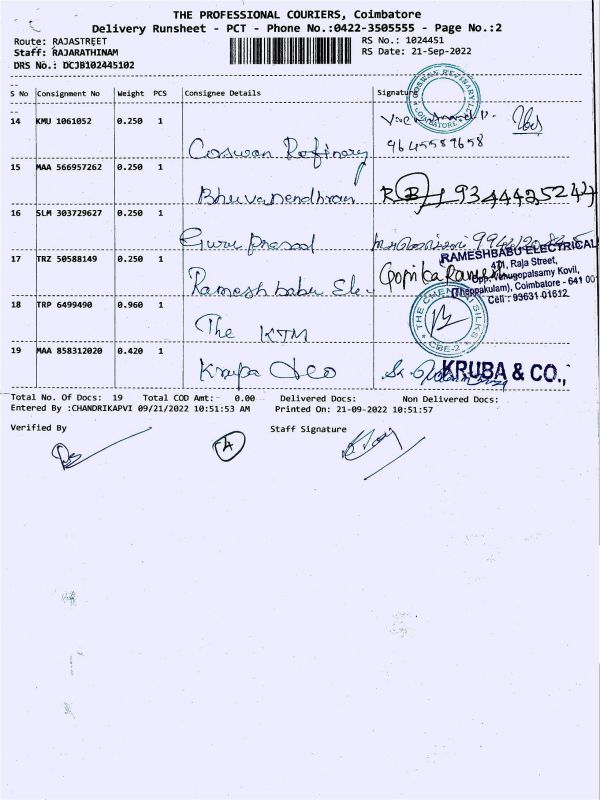 THE PROFESSIONAL COURIERS, Coimbatore
Delivery Runsheet - PCT - Phone No.:0422-3505555 - Page No.:2
Route: RAJASTREET
RS No.: 1024451
Staff: RAJARATHINAM
RS Date: 21-Sep-2022
DRS No.: DCJB102445102
S No Consignment No Weight PCS Consignee Details Signature
14 KMU 1061052 0.250 1
Coswan Refinery
9645589658
15 MAA 566957262 0.250 1
Bhuvanendhran
16 SLM 303729627 0.250 1
Guru Prasad
17 TRZ 50588149 0.250 1
Ramesh babu Ele-
Gopika Ramesh
RAMESHBABU ELECTRICAL
471, Raja Street,
Opp. Venugopalsamy Kovil,
(Theppakulam), Coimbatore - 641 00
Cell : 93631 01612
18 TRP 6499490 0.960 1
The KTM
THE CHENNAI SILKS
CBE-2
19 MAA 858312020 0.420 1
Krupa
KRUBA & CO.,
Total No. Of Docs: 19 Total COD Amt:- 0.00 Delivered Docs: Non Delivered Docs:
Entered By :CHANDRIKAPVI 09/21/2022 10:51:53 AM Printed On: 21-09-2022 10:51:57
Verified By Staff Signature